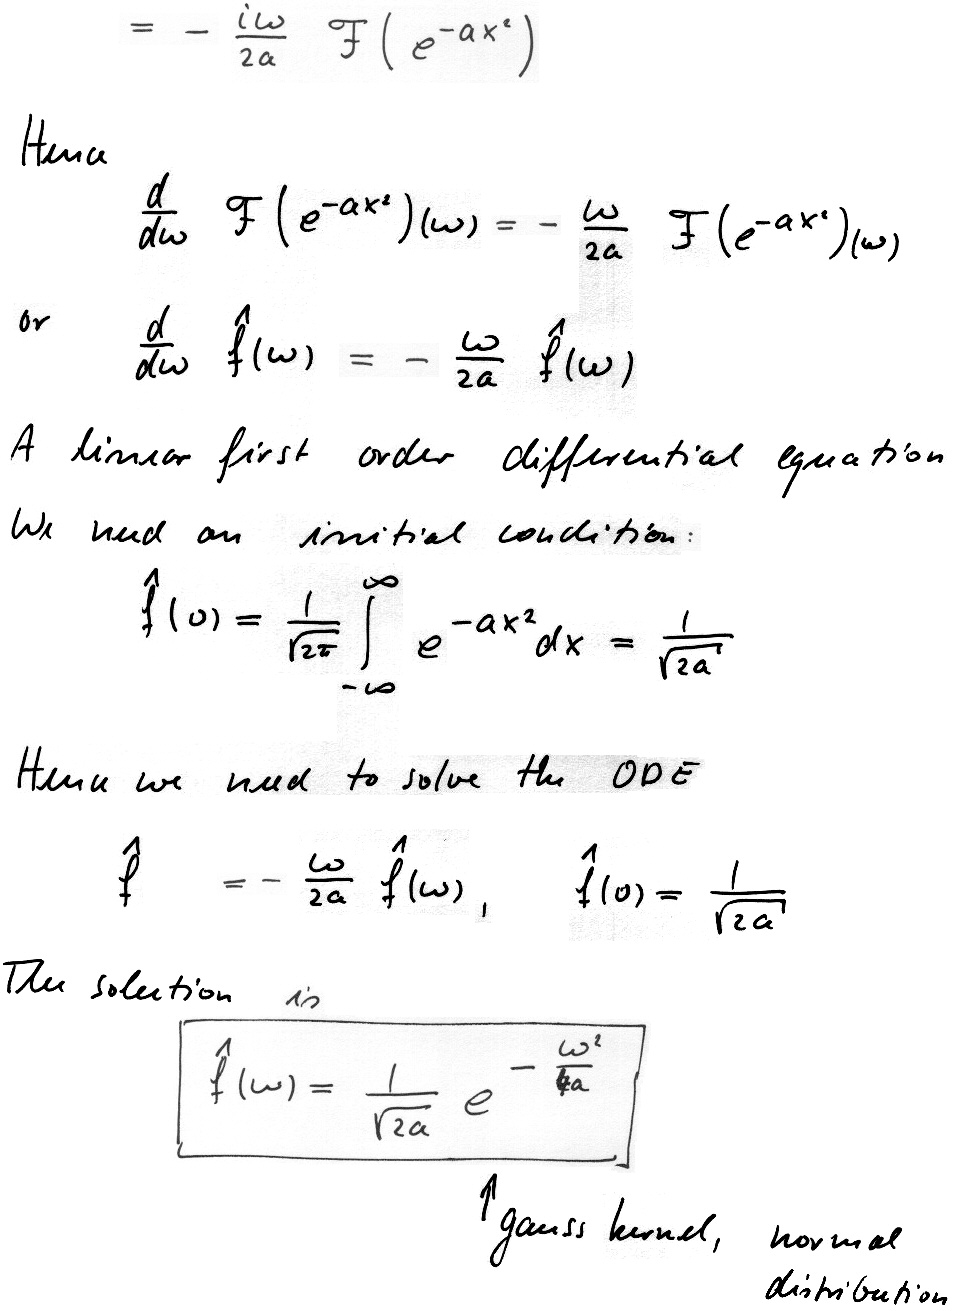 = - iω/2a ℱ(e^{-ax²})
Hence
d/dω ℱ(e^{-ax²})(ω) = - ω/2a ℱ(e^{-ax²})(ω)
or d/dω f̂(ω) = - ω/2a f̂(ω)
A linear first order differential equation
We need an initial condition:
f̂(0) = 1/√2π ∫_{-∞}^{∞} e^{-ax²} dx = 1/√2a
Hence we need to solve the ODE
f̂ = - ω/2a f̂(ω), f̂(0) = 1/√2a
The solution is
f̂(ω) = 1/√2a e^{-ω²/4a}
↑ gauss kernel, normal
distribution